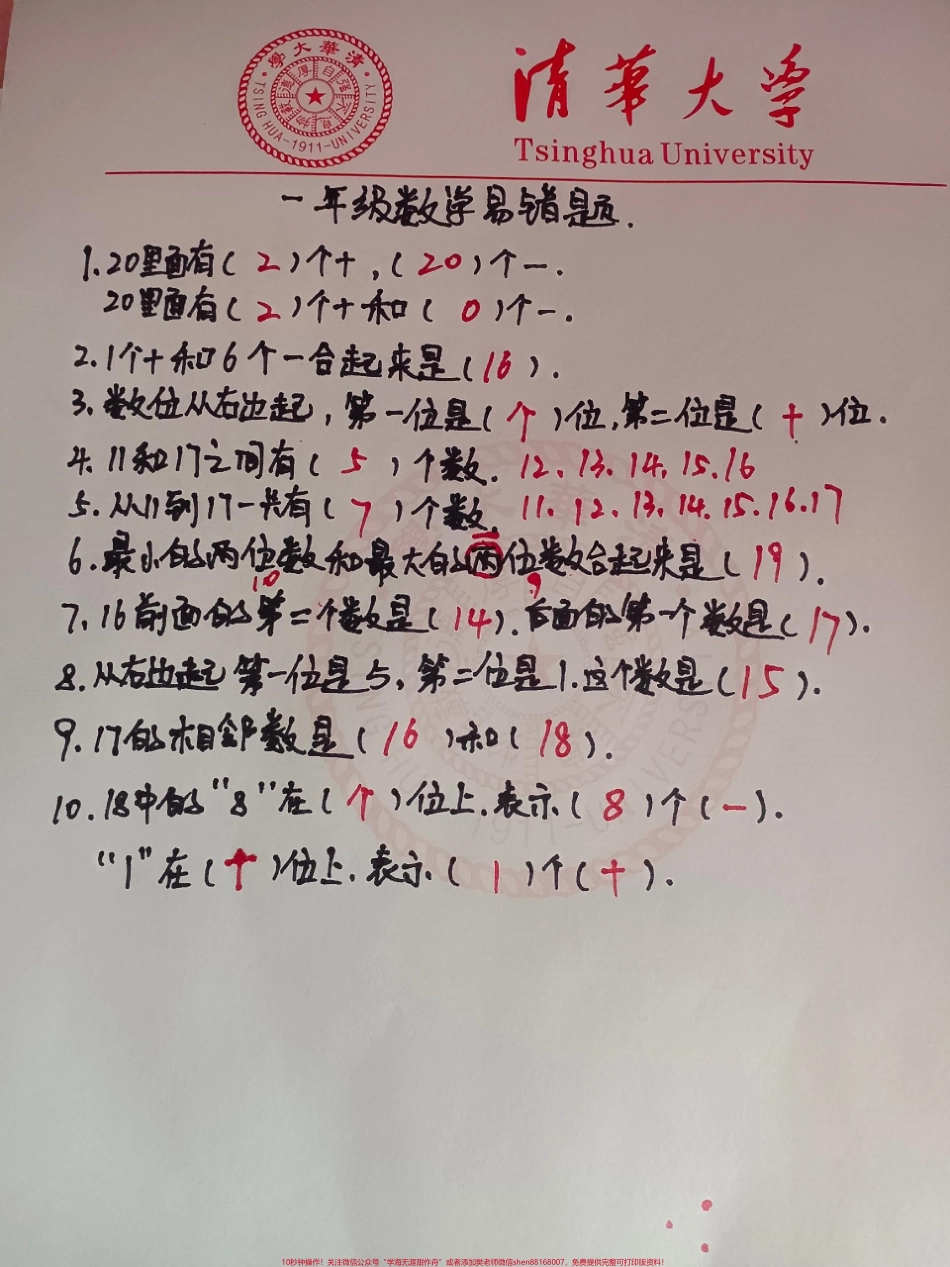 清華大學
TSINGHUA-1911-UNIVERSITY
清華大学
Tsinghua University
一年级数学易错题.
1.20里面有(2)个十,(20)个一.
20里面有(2)个十和(0)个一.
2.1个十和6个一合起来是(16).
3.数位从右边起,第一位是(个)位,第二位是(十)位.
4.11和17之间有(5)个数. 12、13、14、15、16
5.从11到17一共有(7)个数. 11、12、13、14、15、16、17
6.最小的两位数和最大的两位数合起来是(19).
一
10 9
7.16前面的第二个数是(14).后面的第一个数是(17).
8.从右边起第一位是5,第二位是1.这个数是(15).
9.17的相邻数是(16)和(18).
10.18中的“8”在(个)位上.表示(8)个(一).
“1”在(十)位上.表示(1)个(十).
10秒钟操作!关注微信公众号“学海无涯甜作舟”或者添加樊老师微信shen88168007,免费提供完整可打印版资料!